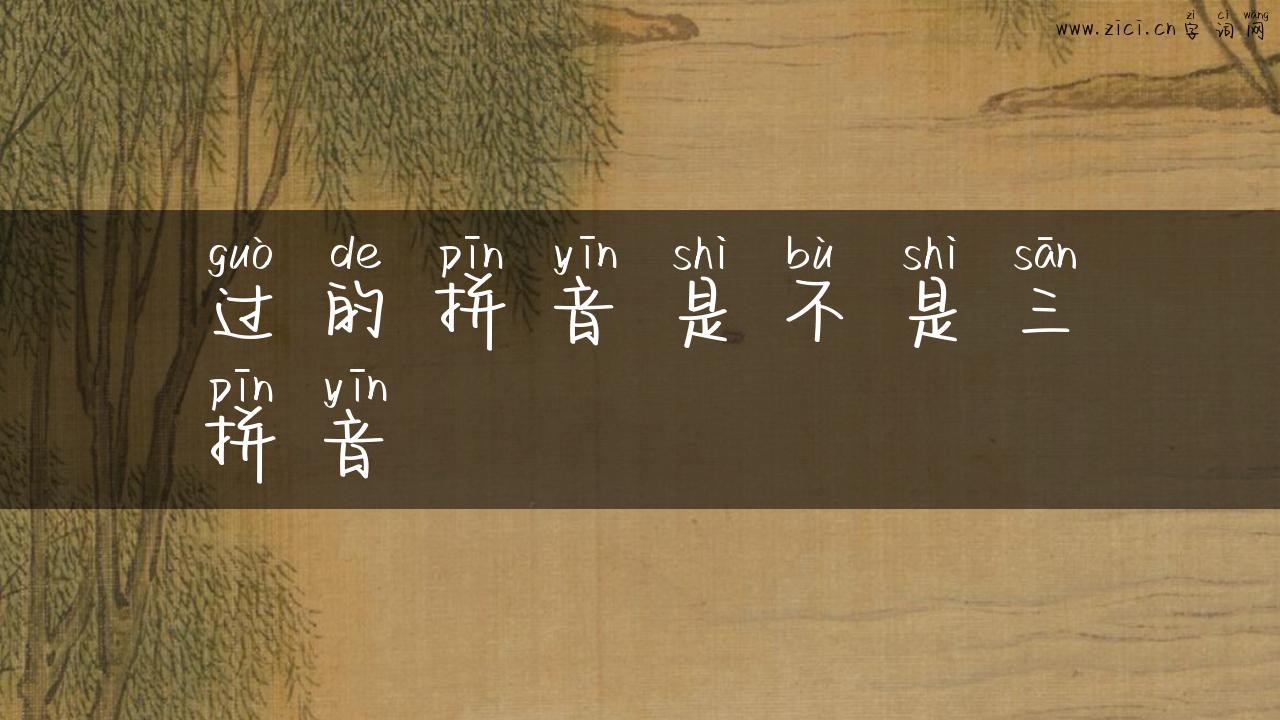 www.zici.cn zì cí wǎng
字词网
guò de pīn yīn shì bù shì sān
过的拼音是不是三
pīn yīn
拼音